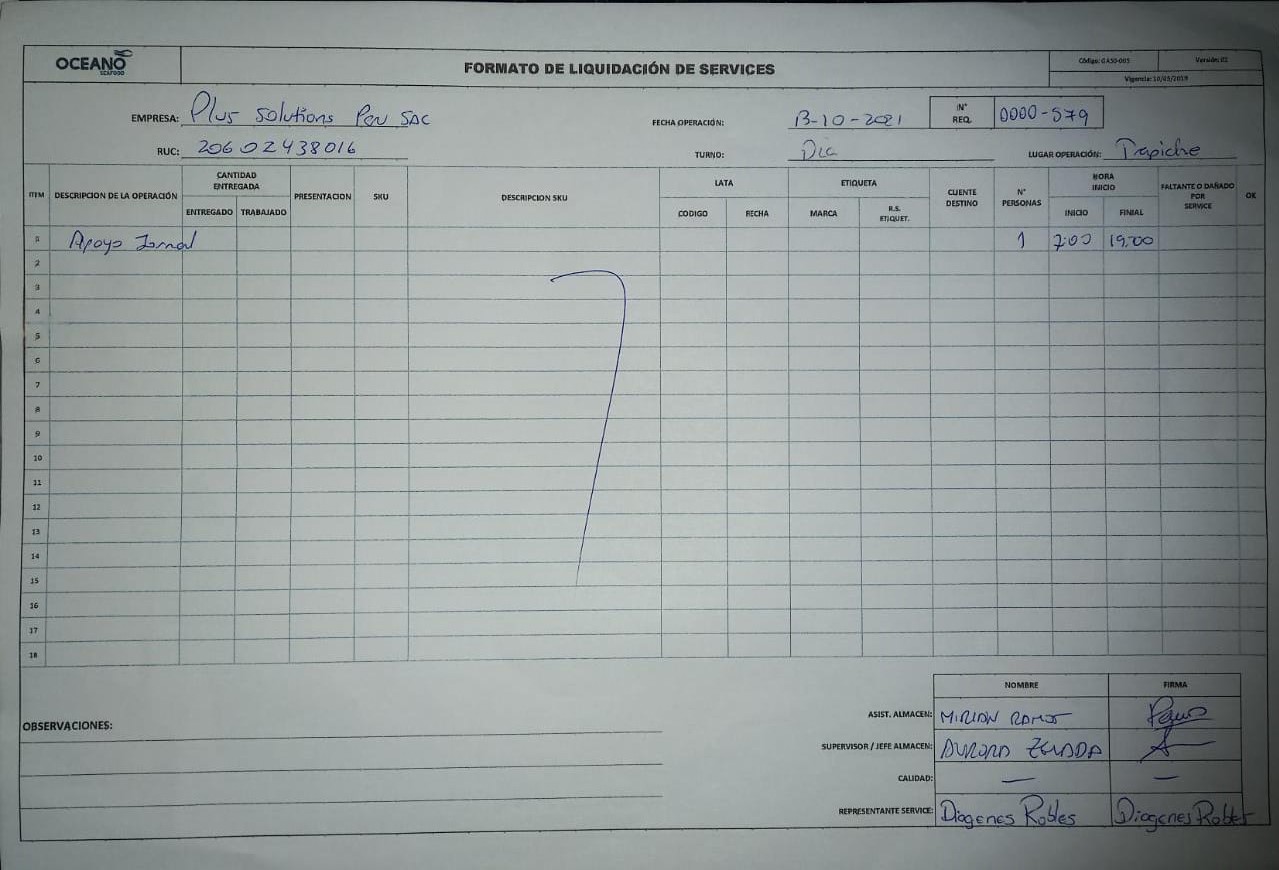 OCEANO
SEAFOOD
FORMATO DE LIQUIDACIÓN DE SERVICES
Código: GASO-005 Versión: 02
Vigencia: 10/05/2019
EMPRESA: Plus Solutions Peru SAC
FECHA OPERACIÓN: 13-10-2021
N° REQ. 0000-579
RUC: 20602438016
TURNO: Dia
LUGAR OPERACIÓN: Trapiche
ITEM DESCRIPCION DE LA OPERACIÓN CANTIDAD ENTREGADA PRESENTACION SKU DESCRIPCION SKU LATA ETIQUETA CLIENTE DESTINO N° PERSONAS HORA INICIO FALTANTE O DAÑADO POR SERVICE OK
ENTREGADO TRABAJADO CODIGO FECHA MARCA R.S. ETIQUET. INICIO FINIAL
1 Apoyo Jornal 1 7:00 19:00
2
3
4
5
6
7
8
9
10
11
12
13
14
15
16
17
18
NOMBRE FIRMA
OBSERVACIONES:
ASIST. ALMACEN: MIRIAN RAMOS
SUPERVISOR / JEFE ALMACEN: AURORA ZELADA
CALIDAD: — —
REPRESENTANTE SERVICE: Diogenes Robles Diogenes Robles